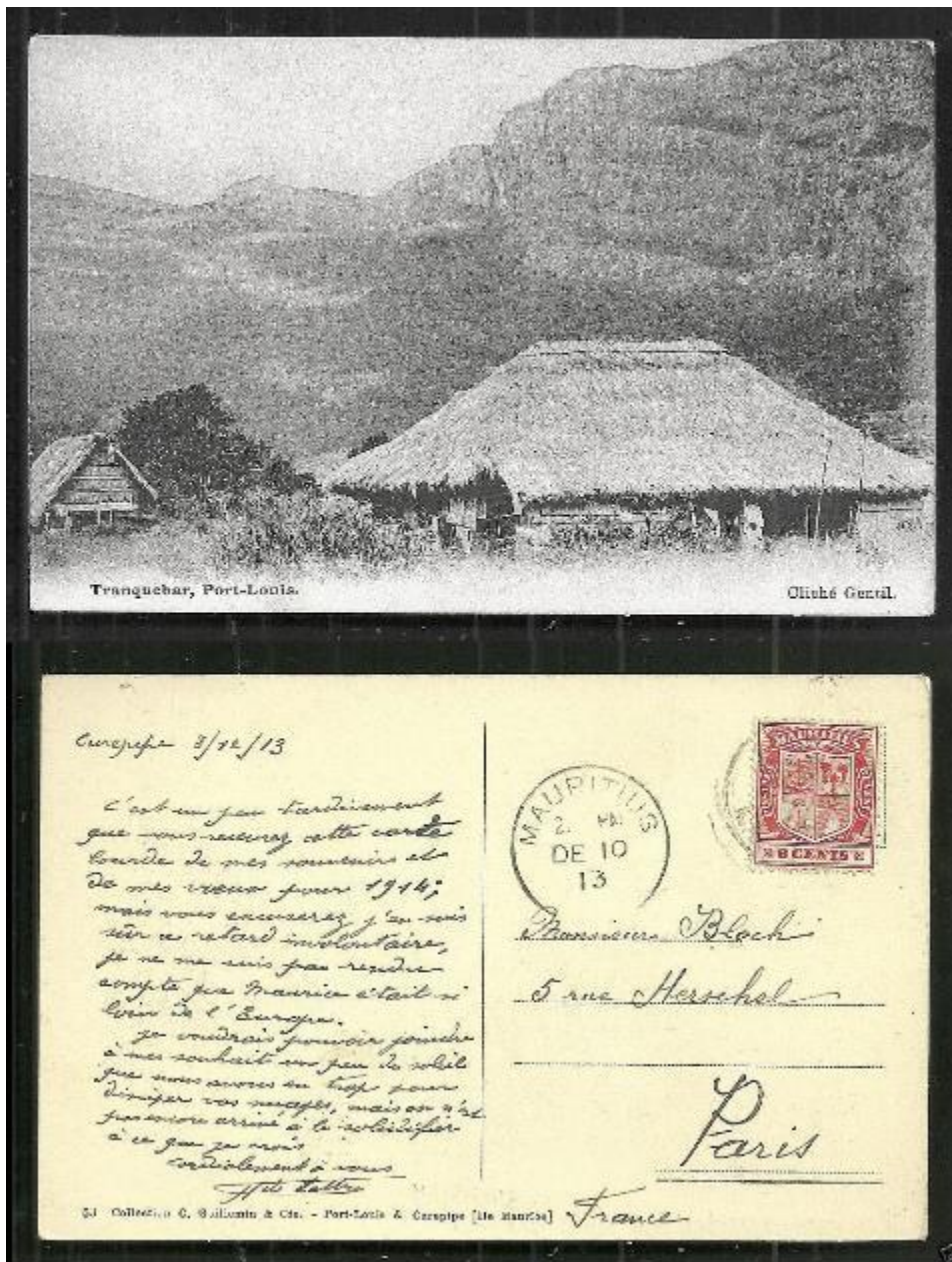 Tranquebar, Port-Louis.
Cliché Gentil.
Curepipe 8/12/13
c'est un peu tardivement
que vous recevrez cette carte
lourde de mes souvenirs et
de mes vœux pour 1914;
mais vous excuserez j'en suis
sûr ce retard involontaire,
je ne me suis pas rendu
compte que Maurice était si
loin de l'Europe.
je voudrais pouvoir joindre
à mes souhait un peu de soleil
que nous avons en trop pour
dissiper vos nuages, mais on n'est
pas encore arrivé à le solidifier
à ce que je crois
cordialement à vous
MAURITIUS
2. PM
DE 10
13
MAURITIUS
6 CENTS
Monsieur Bloch
5 rue Herschel
Paris
France
Collection C. Guillemin & Cie. - Port-Louis & Curepipe [Ile Maurice]